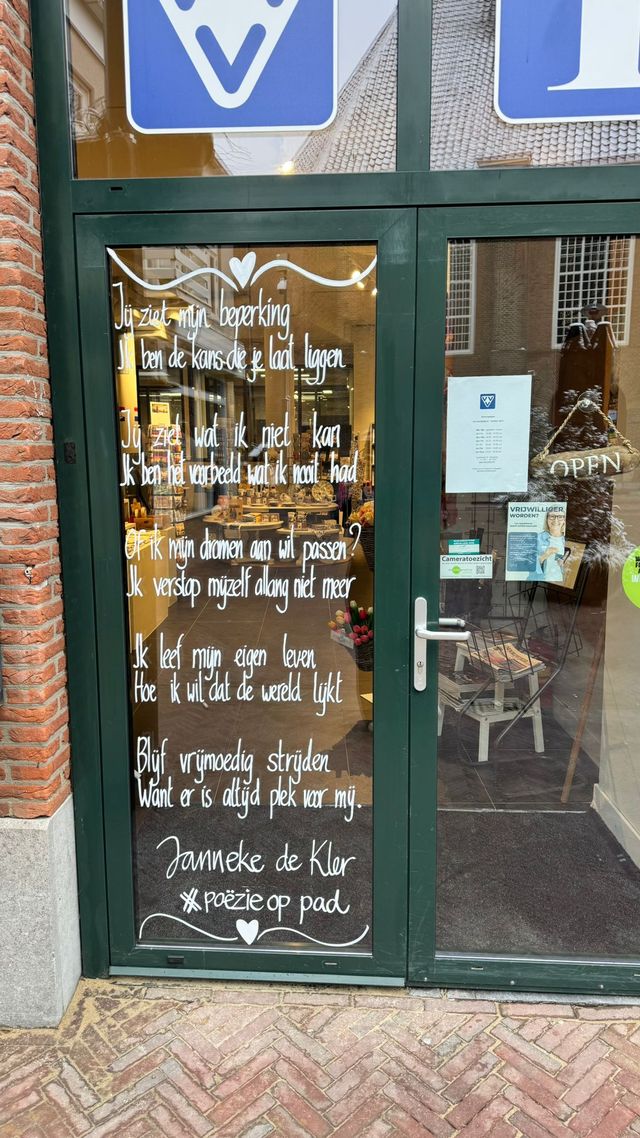 Jij ziet mijn beperking
Ik ben de kans die je laat liggen
Jij ziet wat ik niet kan
Ik ben het voorbeeld wat ik nooit had
Of ik mijn dromen aan wil passen?
Ik verstop mijzelf allang niet meer
Ik leef mijn eigen leven
Hoe ik wil dat de wereld lijkt
Blijf vrijmoedig strijden
Want er is altijd plek voor mij.
Janneke de Kler
#poëzie op pad
OPEN
VRIJWILLIGER
WORDEN?
Cameratoezicht